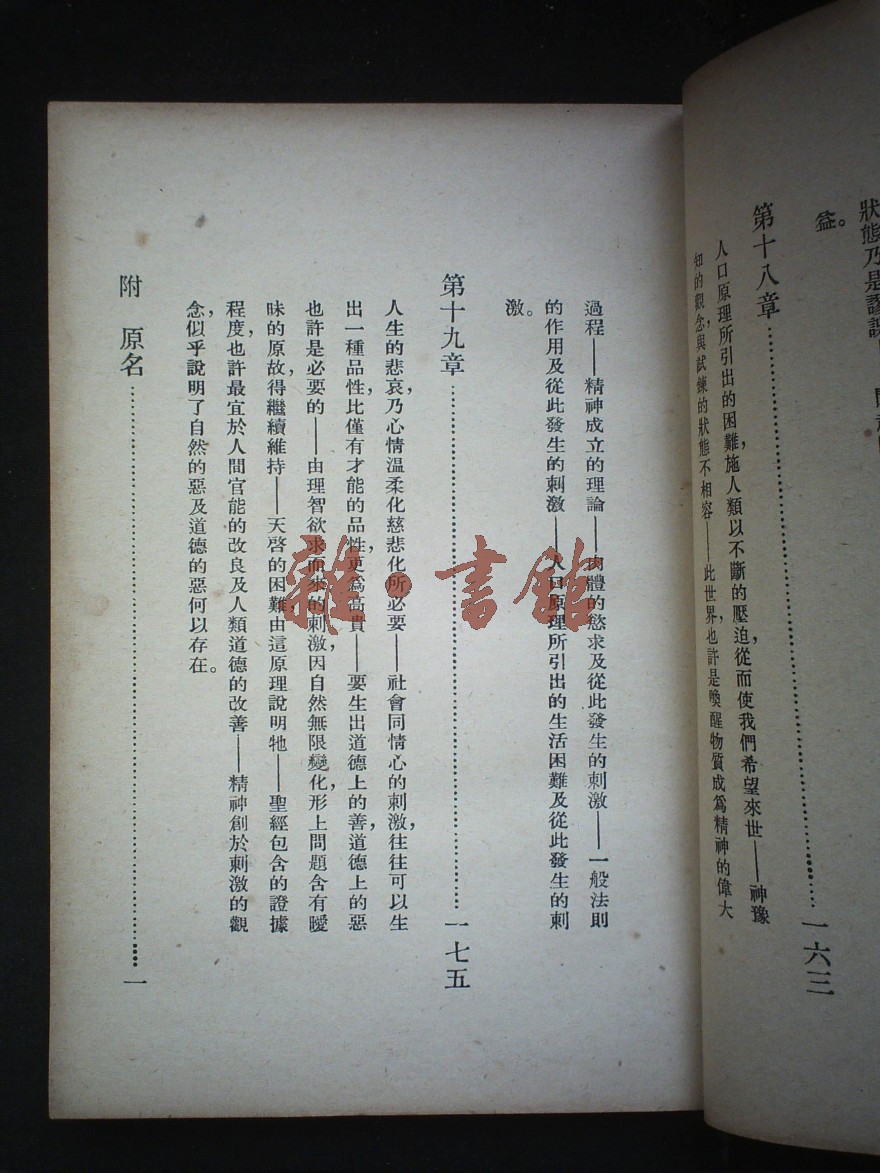 狀態乃是謬誤
益。
第十八章……一六三
人口原理所引出的困難，施人類以不斷的壓迫，從而使我們希望來世——神豫
知的觀念，與試鍊的狀態不相容——此世界，也許是喚醒物質成爲精神的偉大
過程——精神成立的理論——肉體的慾求及從此發生的刺激——一般法則
的作用及從此發生的刺激——人口原理所引出的生活困難及從此發生的刺
激。
第十九章……一七五
人生的悲哀，乃心情溫柔化慈悲化所必要——社會同情心的刺激，往往可以生
出一種品性，比僅有才能的品性，更爲高貴——要生出道德上的善，道德上的惡
也許是必要的——由理智欲求而來的刺激，因自然無限變化，形上問題含有曖
昧的原故，得繼續維持——天啓的困難，由這原理說明牠——聖經包含的證據
程度，也許最宜於人間官能的改良及人類道德的改善——精神創於刺激的觀
念，似乎說明了自然的惡及道德的惡何以存在。
附　原名……一
雜·書館